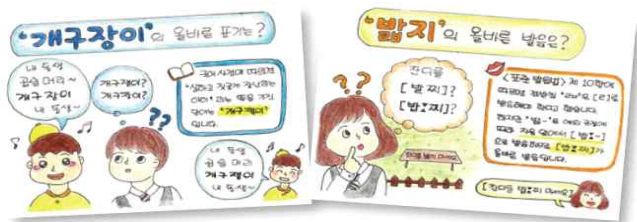 '개구장이'의 올바른 표기는?
내 동생
곱슬 머리~
개구장이
내 동생~
개구쟁이?
개구장이?
국어사전에 따르면
"심하고 짓궂게 장난하는
아이"라는 뜻을 가진
단어는 "개구쟁이"
입니다.
내 동생
곱슬 머리
개구쟁이
내 동생~
'밟지'의 올바른 발음은?
잔디를
[발찌]?
[밥:찌]?
<표준 발음법> 제 10항에
따르면 겹받침 'ㄼ'은 [ㄹ]로
발음해야 한다고 합니다.
하지만 '밟-'은 예외 규정에
따라 자음 앞에서 [밥:-]
으로 발음하므로 [밥:찌]가
올바른 발음입니다.
잔디를 밟지 마세요
[잔디를 밥:찌 마세요]